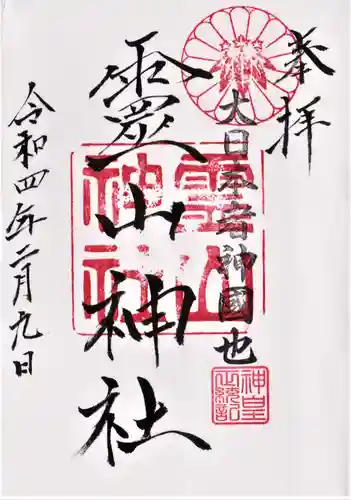 奉拝
大日本者神國也
靈山神社
令和四年二月九日
靈山神社
神皇正統記